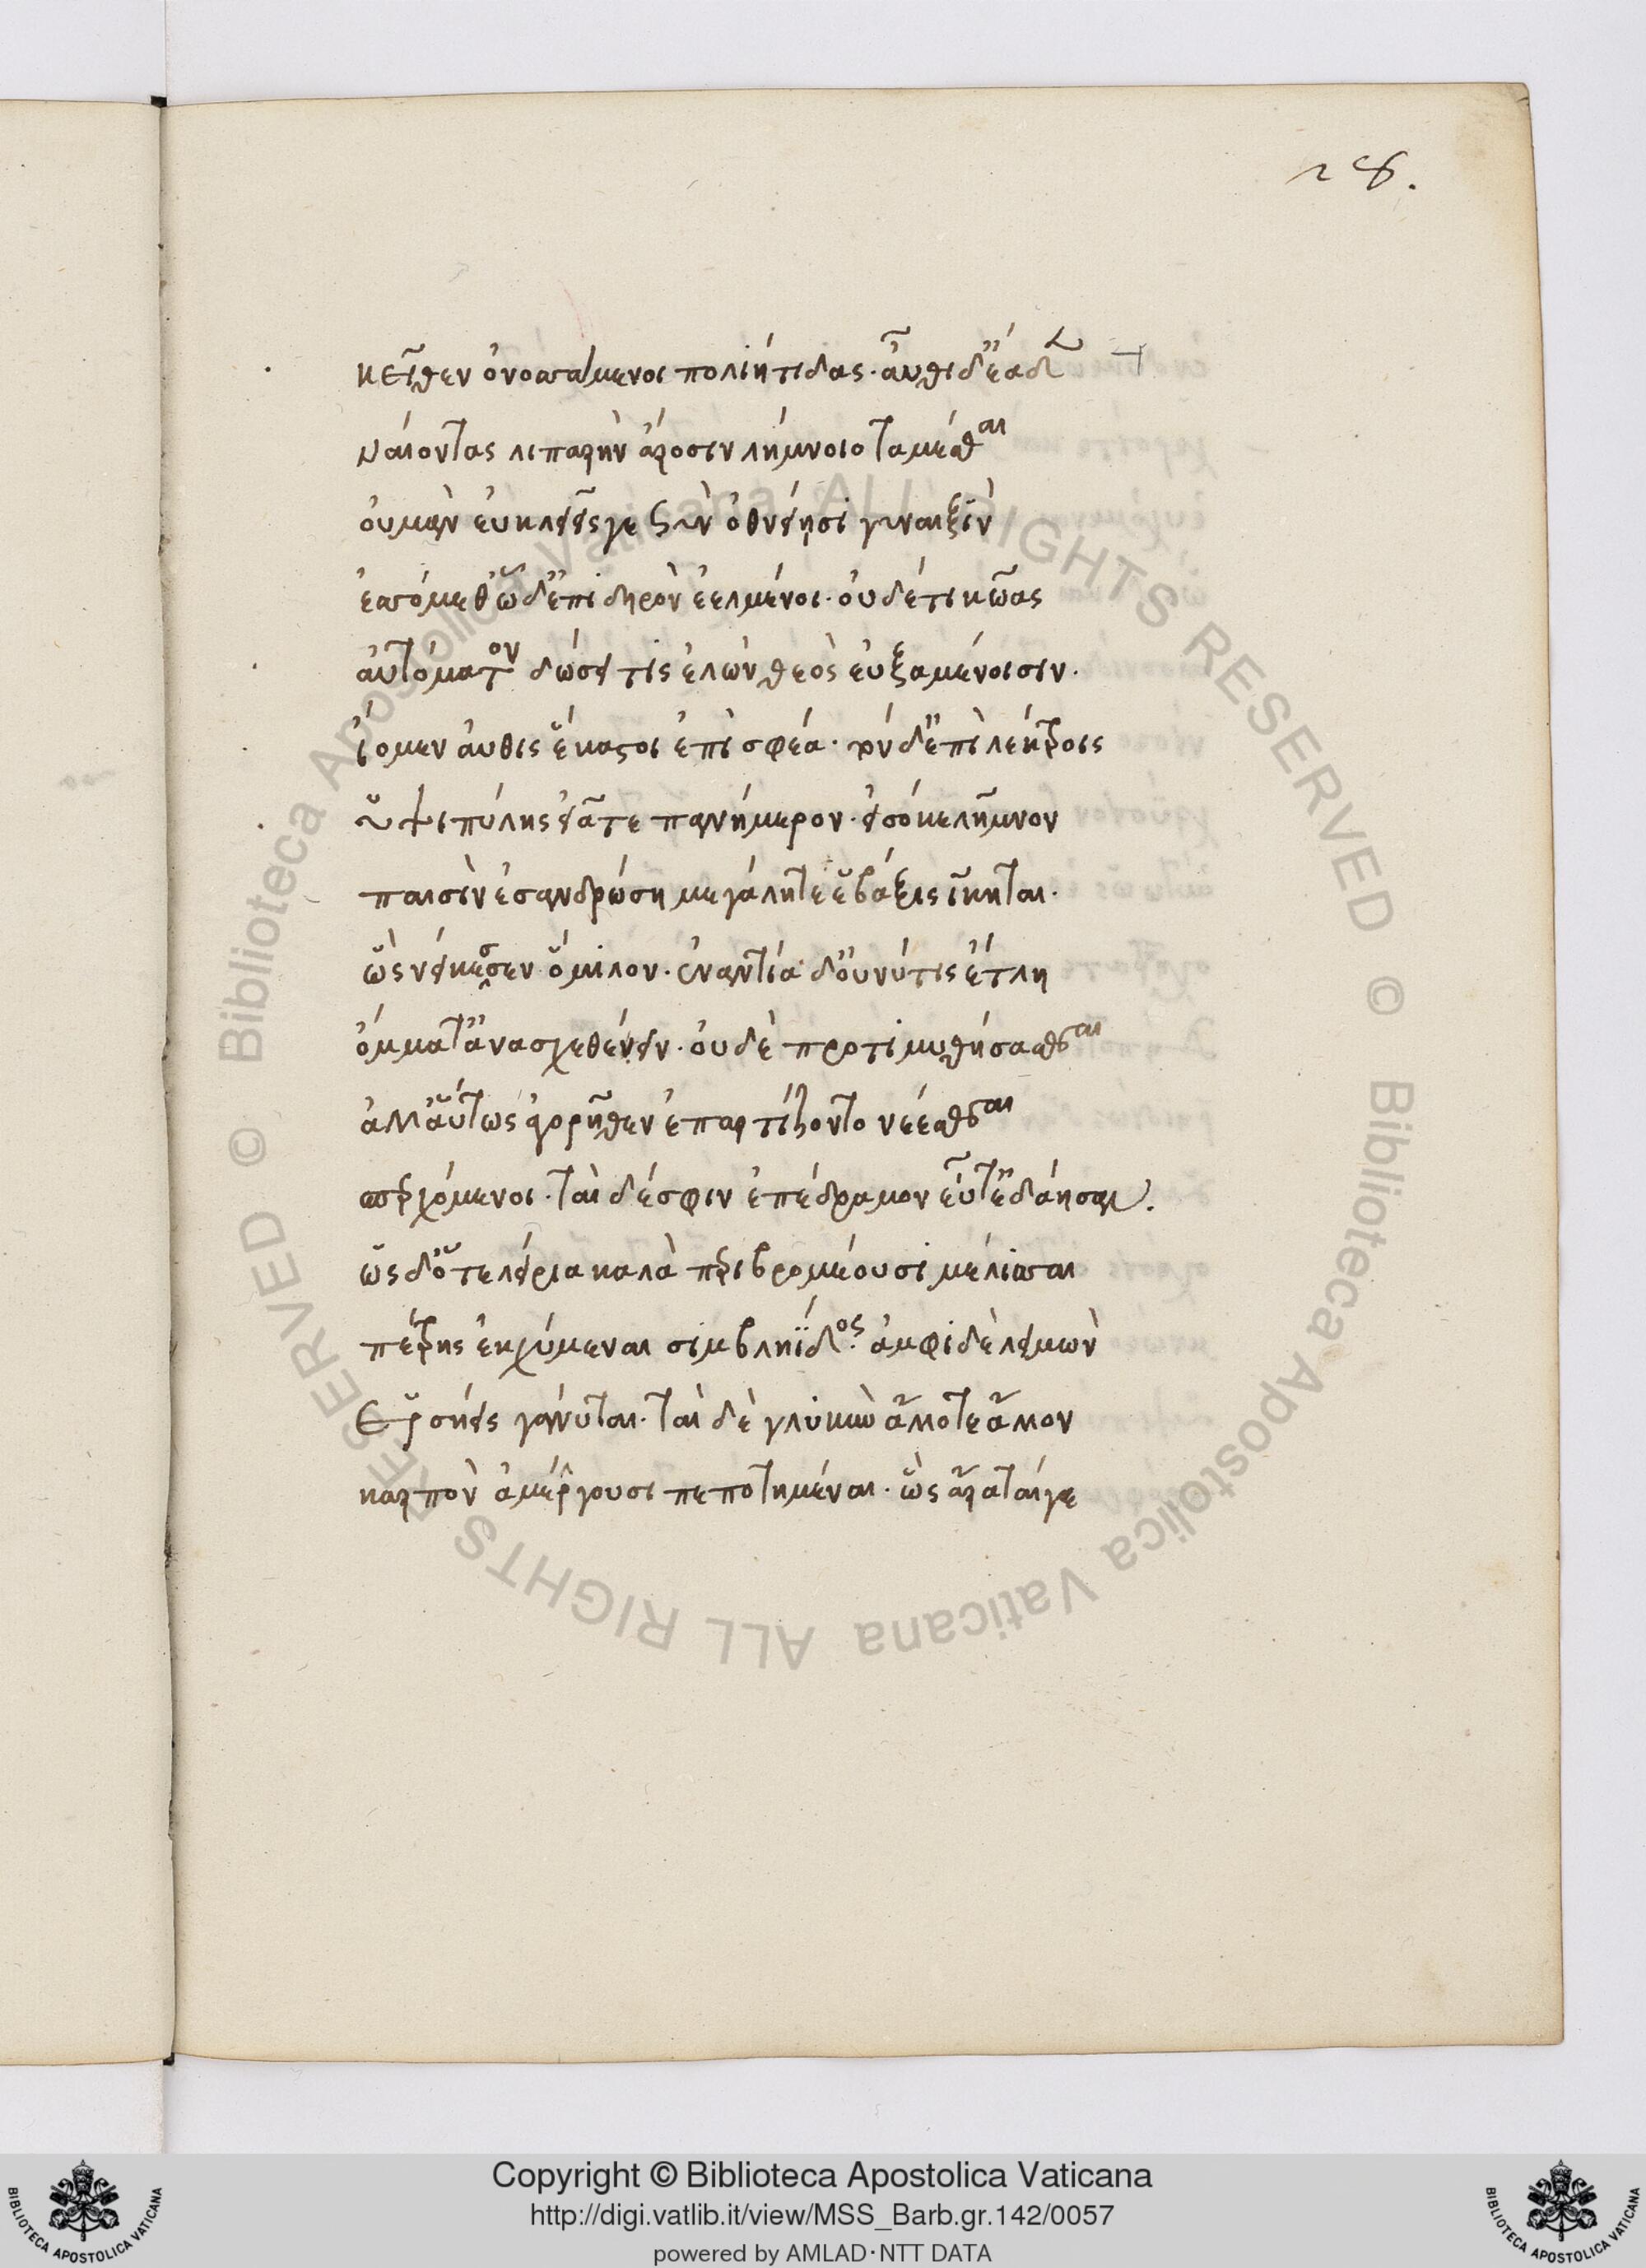 28.
κεῖθεν ὀνοσσάμενοι πολιήτιδας· αὖθι δ' ἕαδεν
ναίοντας λιπαρὴν ἄροσιν λήμνοιο ταμέσθαι
οὐ μὰν εὐκλειεῖς γε σὺν ὀθνείῃσι γυναιξὶν
ἐσσόμεθ' ὧδ' ἐπὶ δηρὸν ἐελμένοι· οὐδέ τι κῶας
αὐτόματον δώσει τις ἑλὼν θεὸς εὐξαμένοισιν·
ἴομεν αὖθις ἕκαστοι ἐπὶ σφέα· τὸν δ' ἐπὶ λέκτροις
ὑψιπύλης εἰᾶτε πανήμερον· εἰσόκε λῆμνον
παισὶν ἐσανδρώσῃ μεγάλη τέ ἑ βάξις ἵκηται·
ὣς νείκεσσεν ὅμιλον· ἐναντία δ' οὔ νύ τις ἔτλη
ὄμματ' ἀνασχεθέειν· οὐδὲ προτιμυθήσασθαι
ἀλλ' αὔτως ἀγορῆθεν ἐπαρτίζοντο νέεσθαι
σπερχόμενοι· ταὶ δέ σφιν ἐπέδραμον εὖτ' ἐδάησαν.
ὡς δ' ὅτε λείρια καλὰ περιβρομέουσι μέλισσαι
πέτρης ἐκχύμεναι σιμβληΐδος· ἀμφὶ δὲ λειμὼν
ἑρσήεις γάνυται· ταὶ δὲ γλυκὺν ἄλλοτε ἄλλον
καρπὸν ἀμέργουσι πεποτημέναι· ὣς ἄρα ταίγε
Copyright © Biblioteca Apostolica Vaticana
http://digi.vatlib.it/view/MSS_Barb.gr.142/0057
powered by AMLAD·NTT DATA
BIBLIOTECA APOSTOLICA VATICANA
BIBLIOTECA APOSTOLICA VATICANA
© Biblioteca Apostolica Vaticana ALL RIGHTS RESERVED © Biblioteca Apostolica Vaticana ALL RIGHTS RESERVED